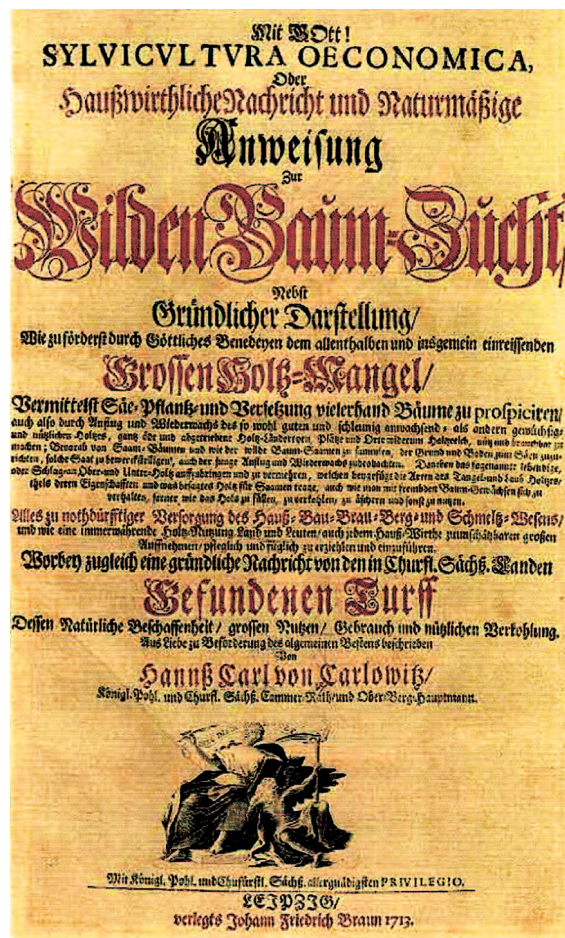 Mit GOtt!
SYLVICVLTVRA OECONOMICA,
Oder
Haußwirthliche Nachricht und Naturmäßige
Anweisung
Zur
Wilden Baum-Zucht,
Nebst
Gründlicher Darstellung/
Wie zu förderst durch Göttliches Benedeyen dem allenthalben und insgemein einreissenden
Grossen Holtz-Mangel/
Vermittelst Säe-Pflantz- und Versetzung vielerhand Bäume zu prospiciren/
auch also durch Anflug und Wiederwachs des so wohl guten und schleunig anwachsend- als andern gewüchsig-
und nützlichen Holtzes, gantz öde und abgetriebene Holtz-Ländereyen, Plätze und Orte wiederum Holtzreich, nütz und brauchbar zu
machen; Bevorab von Saam-Bäumen und wie der wilde Baum-Saamen zu sammlen, der Grund und Boden zum Säen zuzu-
richten, solche Saat zu bewerckstelligen, auch der junge Anflug und Wiederwachs zu beobachten. Daneben das sogenannte lebendige,
oder Schlag-an Ober-und Unter-Holtz aufzubringen und zu vermehren, welchen beygefügt die Arten des Tangel-und Laub-Holtzes,
theils deren Eigenschafften und was besagtes Holtz für Saamen trage, auch wie man mit frembden Baum-Gewächsen sich zu
verhalten, ferner wie das Holtz zu fällen, zu verkohlen, zu äschern und sonst zu nutzen.
Alles zu nothdürfftiger Versorgung des Hauß-Bau-Brau-Berg-und Schmeltz-Wesens/
und wie eine immerwährende Holtz-Nutzung Land und Leuten/auch jedem Hauß-Wirthe zu unschätzbaren großen
Auffnehmen/pfleglich und füglich zu erziehlen und einzuführen.
Worbey zugleich eine gründliche Nachricht von den in Churfl. Sächß. Landen
Gefundenen Turff
Dessen Natürliche Beschaffenheit/ grossen Nutzen/ Gebrauch und nützlichen Verkohlung.
Aus Liebe zu Beförderung des algemeinen Bestens beschrieben
Von
Hannß Carl von Carlowitz/
Königl. Pohl. und Churfl. Sächß. Cammer-Rath/und Ober-Berg-Hauptmann.
Mit Königl. Pohl. und Chufürstl. Sächß. allergnädigsten PRIVILEGIO.
LEIPZIG/
verlegts Johann Friedrich Braun 1713.